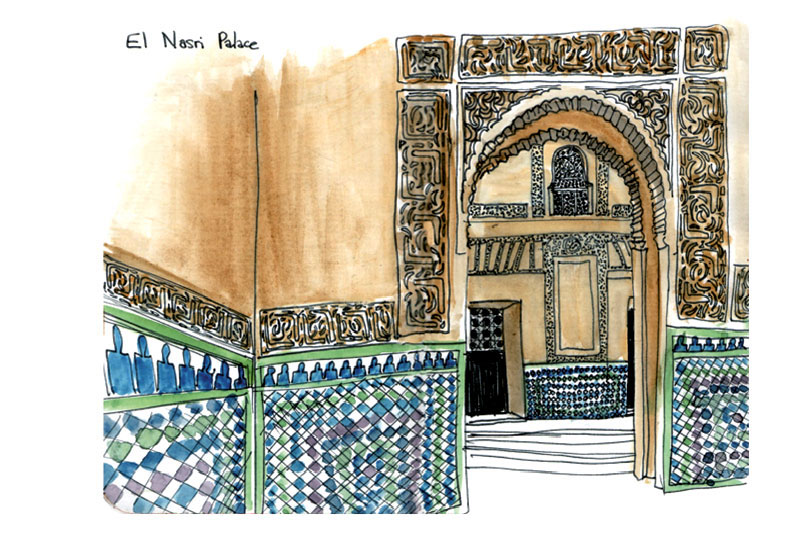 El Nasri Palace